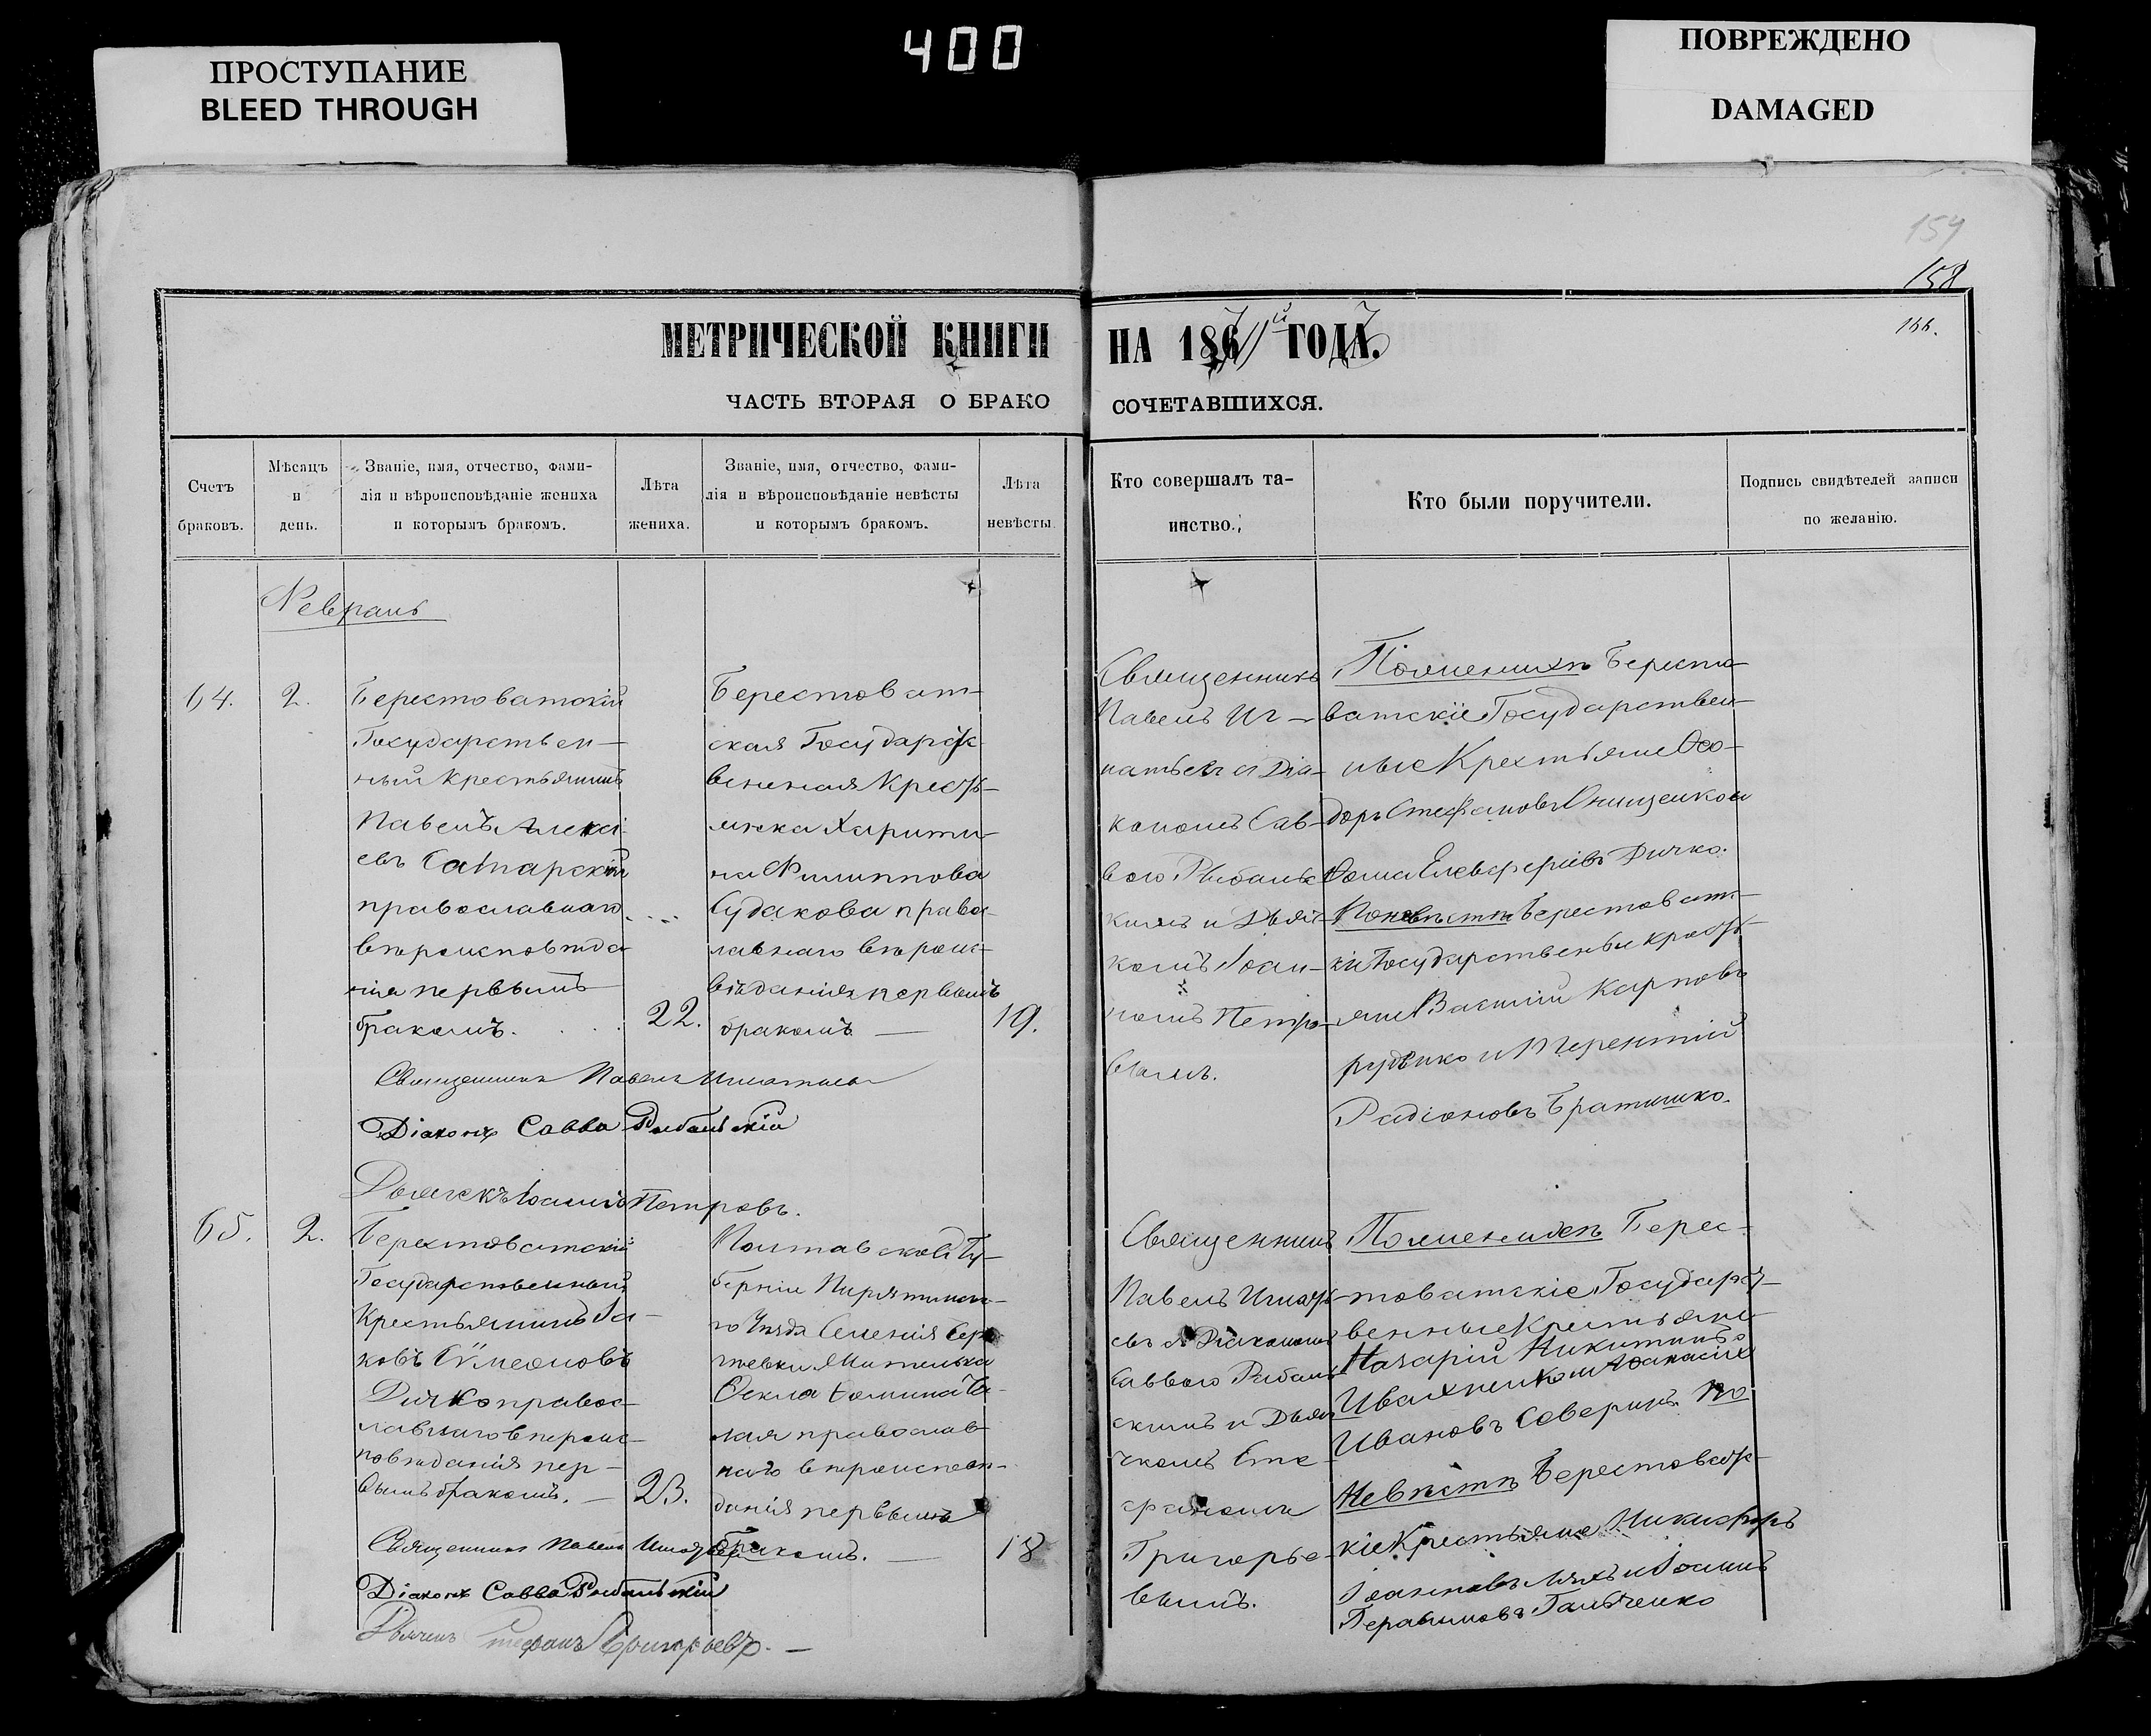 ПРОСТУПАНИЕ
BLEED THROUGH
400
ПОВРЕЖДЕНО
DAMAGED
159
158
166.
МЕТРИЧЕСКОЙ КНИГИ НА 1867 ГОДЪ
ЧАСТЬ ВТОРАЯ О БРАКО СОЧЕТАВШИХСЯ.
Счетъ
браковъ.
Мѣсяцъ
и
день.
Званіе, имя, отчество, фами-
лія и вѣроисповѣданіе жениха
и которымъ бракомъ.
Лѣта
жениха.
Званіе, имя, отчество, фами-
лія и вѣроисповѣданіе невѣсты
и которымъ бракомъ.
Лѣта
невѣсты
Кто совершалъ та-
инство.
Кто были поручители.
Подпись свидѣтелей записи
по желанію.
Февраль
64.
2.
Берестоватскій
Государствен-
ный крестьянинъ
Павелъ Алексі-
евъ
православнаго
вѣроисповѣда
нія первымъ
бракомъ.
22.
Берестоват-
ская Государст-
венная Кресть-
янка Харити-
на Филиппова
Судакова правос-
лавнаго вѣроис-
вѣданія первымъ
бракомъ
19.
Священникъ
Павелъ Иг-
натьевъ съ Діа-
кономъ Сав-
вою Рыбаль
кимъ и Дьяч-
комъ Іоан-
номъ Петро-
вымъ.
По женихѣ Бересто-
ватскіе Государствен-
ные Крестьяне Ѳео-
доръ Стефановъ Онищенко и
Ѳома Елевферіевъ Дичко.
По невѣстѣ Берестоват-
кіе Государственые кресть-
яне Василій Карповъ
Руденко и Терентій
Радіоновъ Братишко.
Священникъ Павелъ Игнатьевъ
Діаконъ Савва Рыбальскій
Дьячекъ Іоаннъ Петровъ.
65.
2.
Берестоватскій
Государственный
Крестьянинъ Іа-
ковъ Сѵмеоновъ
Дичко правос-
лавнаго вѣроис-
повѣданія пер-
вымъ бракомъ.
23.
Полтавской Гу-
берніи Пирятинска-
го Уѣзда Селенія Сер
гѣевки Жителька
Ѳекла Ѳомина
ная православ
наго вѣроисповѣ-
данія первымъ
бракомъ.
18
Священникъ
Павелъ Игнать-
евъ съ Діакономъ
Саввою Рыбаль
скимъ и Дьяч
комъ Сте-
фаномъ
Григорье-
вымъ.
По женихѣ Берес-
товатскіе Государст-
венные Крестьяне
Назарій Никитинъ
Ивахненко и Аѳанасій
Ивановъ Северинъ. По
Невѣстѣ Берестоват-
кіе Крестьяне Никифоръ
Іоанновъ Ляхъ и Іоаннъ
Герасимовъ Гальченко
Священникъ Павелъ Игнатьевъ
Діаконъ Савва Рыбальскій
Дьячекъ Стефанъ Григорьевъ.